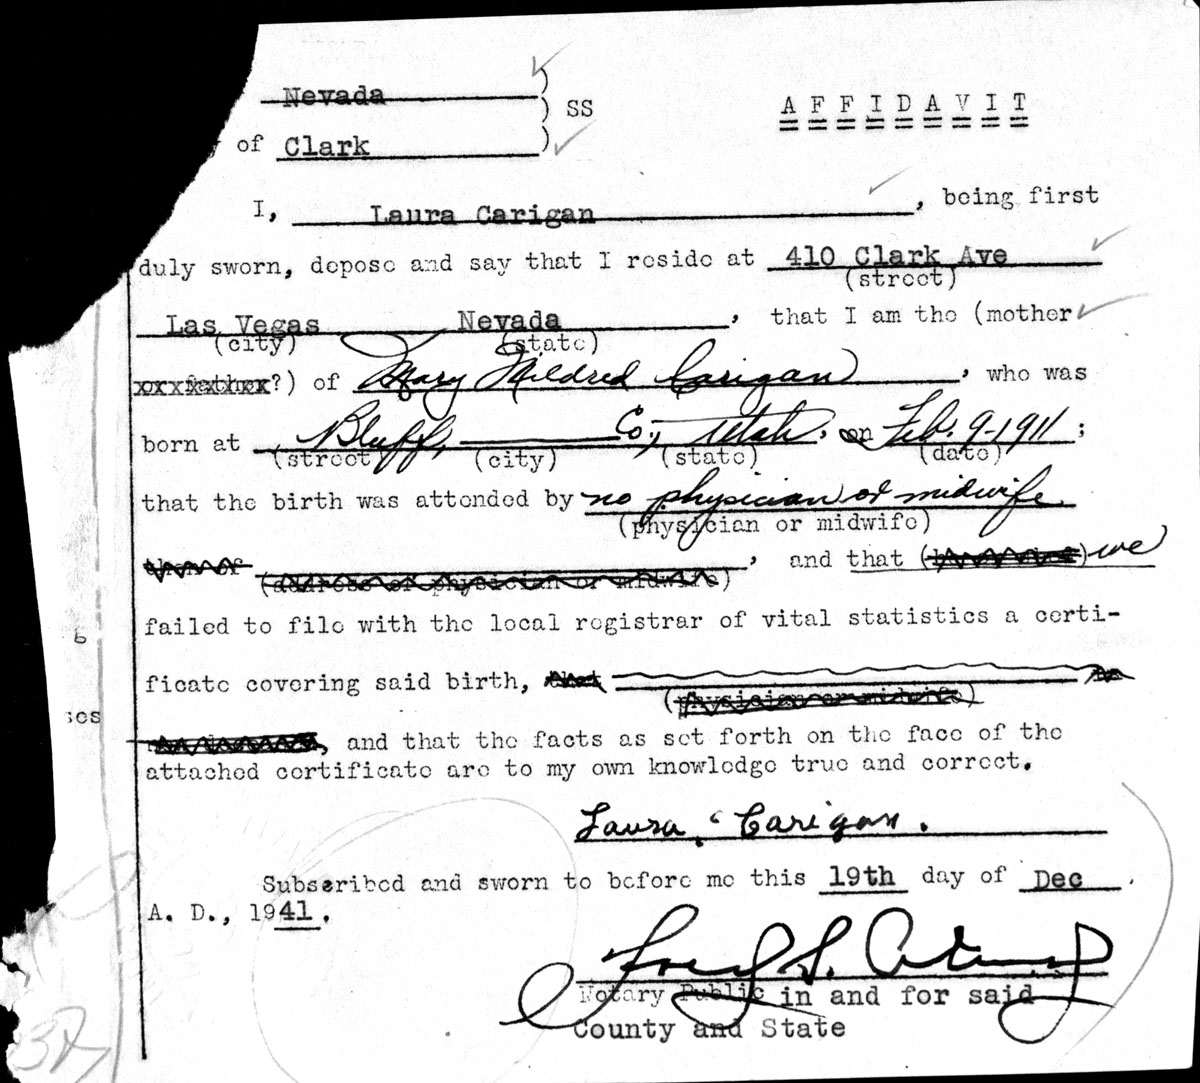 Nevada ) SS
AFFIDAVIT
of Clark )
I, Laura Carigan, being first
duly sworn, depose and say that I reside at 410 Clark Ave
(street)
Las Vegas Nevada, that I am the (mother
(city) (state)
xxxfatherx?) of Mary Mildred Carigan, who was
born at Bluff, Co., Utah. on Feb. 9-1911;
(street (city) (state) (date)
that the birth was attended by no physician or midwife
(physician or midwife)
, and that ( ) we
(address of physician or midwife)
failed to file with the local registrar of vital statistics a certi-
ficate covering said birth, that
(physician or midwife)
, and that the facts as set forth on the face of the
attached certificate are to my own knowledge true and correct.
Laura Carigan.
Subscribed and sworn to before me this 19th day of Dec.
A. D., 1941.
Notary Public in and for said
County and State